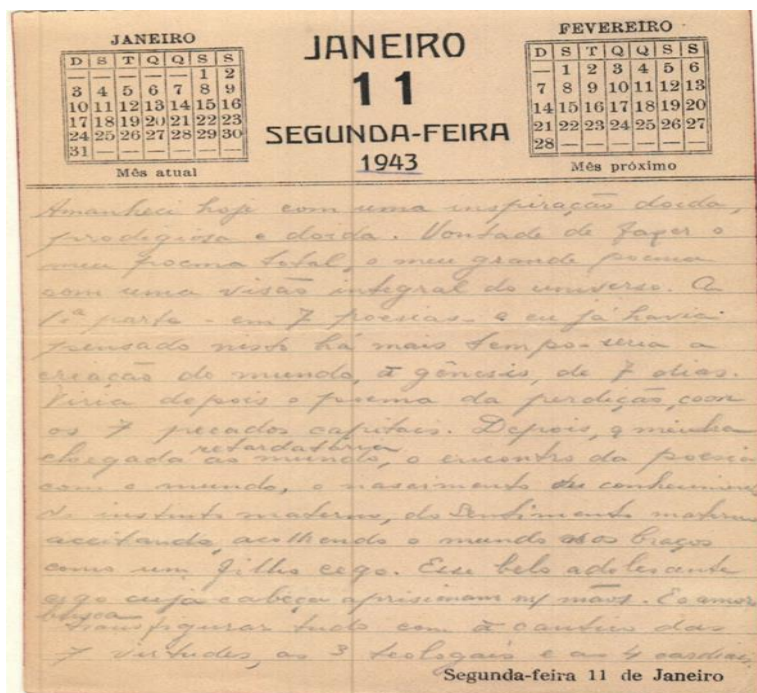 JANEIRO
D S T Q Q S S
— — — — — 1 2
3 4 5 6 7 8 9
10 11 12 13 14 15 16
17 18 19 20 21 22 23
24 25 26 27 28 29 30
31 — — — — — —
Mês atual
JANEIRO
11
SEGUNDA-FEIRA
1943
FEVEREIRO
D S T Q Q S S
— 1 2 3 4 5 6
7 8 9 10 11 12 13
14 15 16 17 18 19 20
21 22 23 24 25 26 27
28 — — — — — —
Mês próximo
Amanheci hoje com uma inspiração doida,
prodigiosa e doida. Vontade de fazer o
meu poema total, o meu grande poema
com uma visão integral do universo. A
1ª parte - em 7 poesias - e eu já havia
pensado nisto há mais tempo - seria a
criação do mundo, a gênesis, de 7 dias.
Viria depois o poema da perdição, com
os 7 pecados capitais. Depois, a minha
retardatária
chegada ao mundo, o encontro da poesia
com o mundo, o nascimento do
do instinto materno, do Sentimento materno
aceitando, acolhendo o mundo nos braços
como um filho cego. Esse belo adolescente
cego cuja cabeça aprisionam mãos. E o amor
busca
transfigurar tudo com o cantico das
7 virtudes, as 3 teologais e as 4 cardiais
Segunda-feira 11 de Janeiro